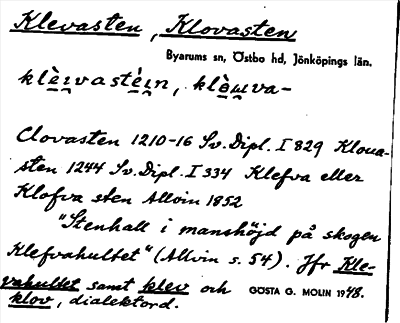 Klevasten, Klovasten
Byarums sn, Östbo hd, Jönköpings län.
Clovasten 1210-16 Sv. Dipl. I 829 Kloua-
sten 1244 Sv. Dipl. I 334 Klefva eller
Klofva sten Allvin 1852
"Stenhall i manshöjd på skogen
Klefvahultet" (Allvin s. 54). Jfr Kle-
vahultet samt klev och GÖSTA G. MOLIN 1948.
klov, dialektord.